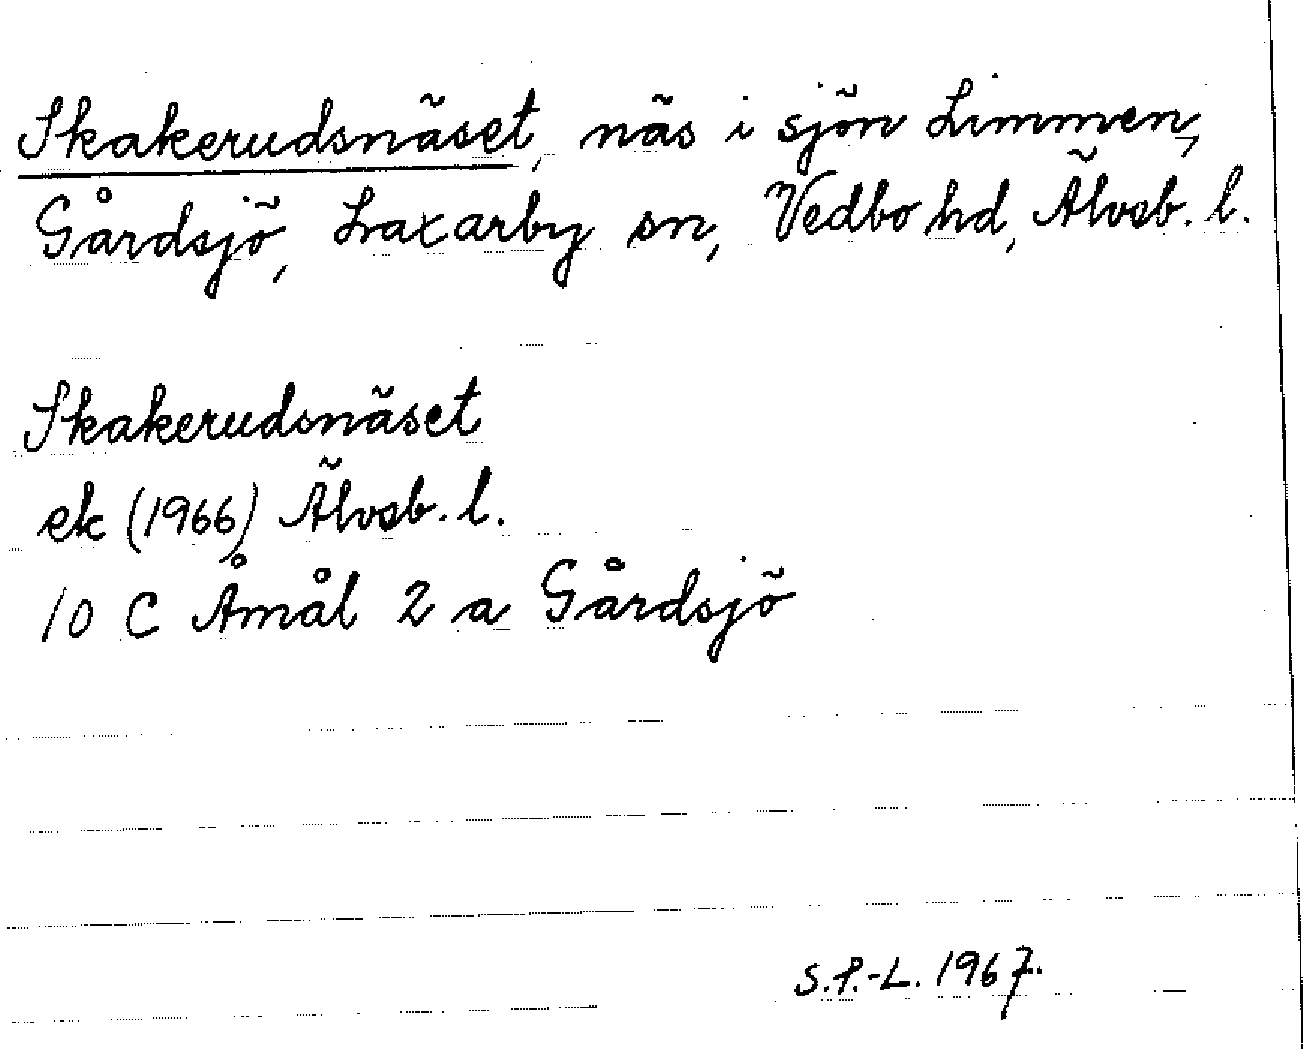 Skakerudsnäset, näs i sjön Limmen,
Gårdsjö, Laxarby sn, Vedbo hd, Älvsb. l.
Skakerudsnäset
ek (1966) Älvsb. l.
10 C Åmål 2 a Gårdsjö
S.P.-L. 1967.